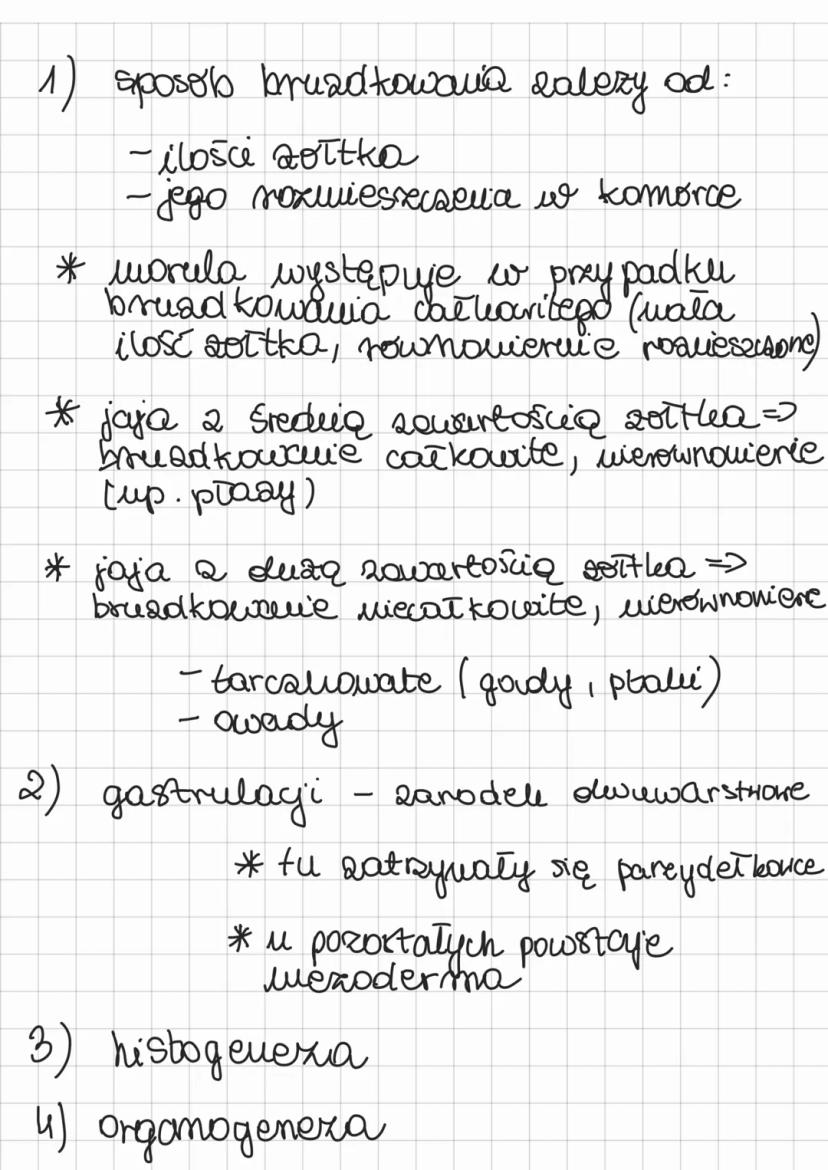 1) sposób bruzdkowania zależy od:
- ilości żółtka
- jego rozmieszczenia w komórce
* morula występuje w przypadku
bruzdkowania całkowitego (mała
ilość żółtka, równomiernie rozmieszczone)
* jaja z średnią zawartością żółtka =>
bruzdkowanie całkowite, nierównomierne
(np. płazy)
* jaja z dużą zawartością żółtka =>
bruzdkowanie niecałkowite, nierównomierne
- tarczkowate (gady, ptaki)
- owady
2) gastrulacji - zarodek dwuwarstwowe
* tu zatrzymały się parzydełkowce
* u pozostałych powstaje
mezoderma
3) histogeneza
4) organogeneza